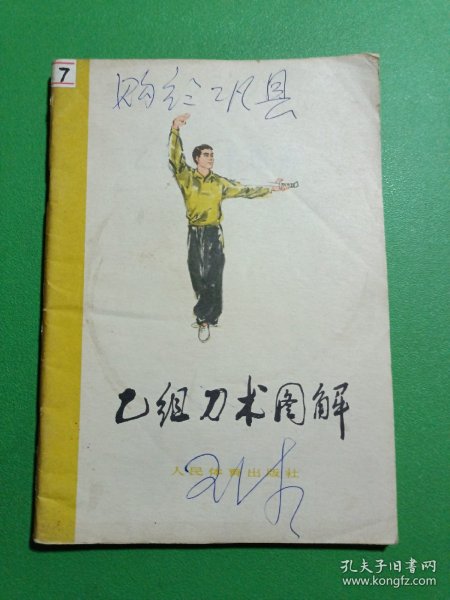 7
购于巩县
乙组刀术图解
人民体育出版社
孔夫子旧书网
www.kongfz.com